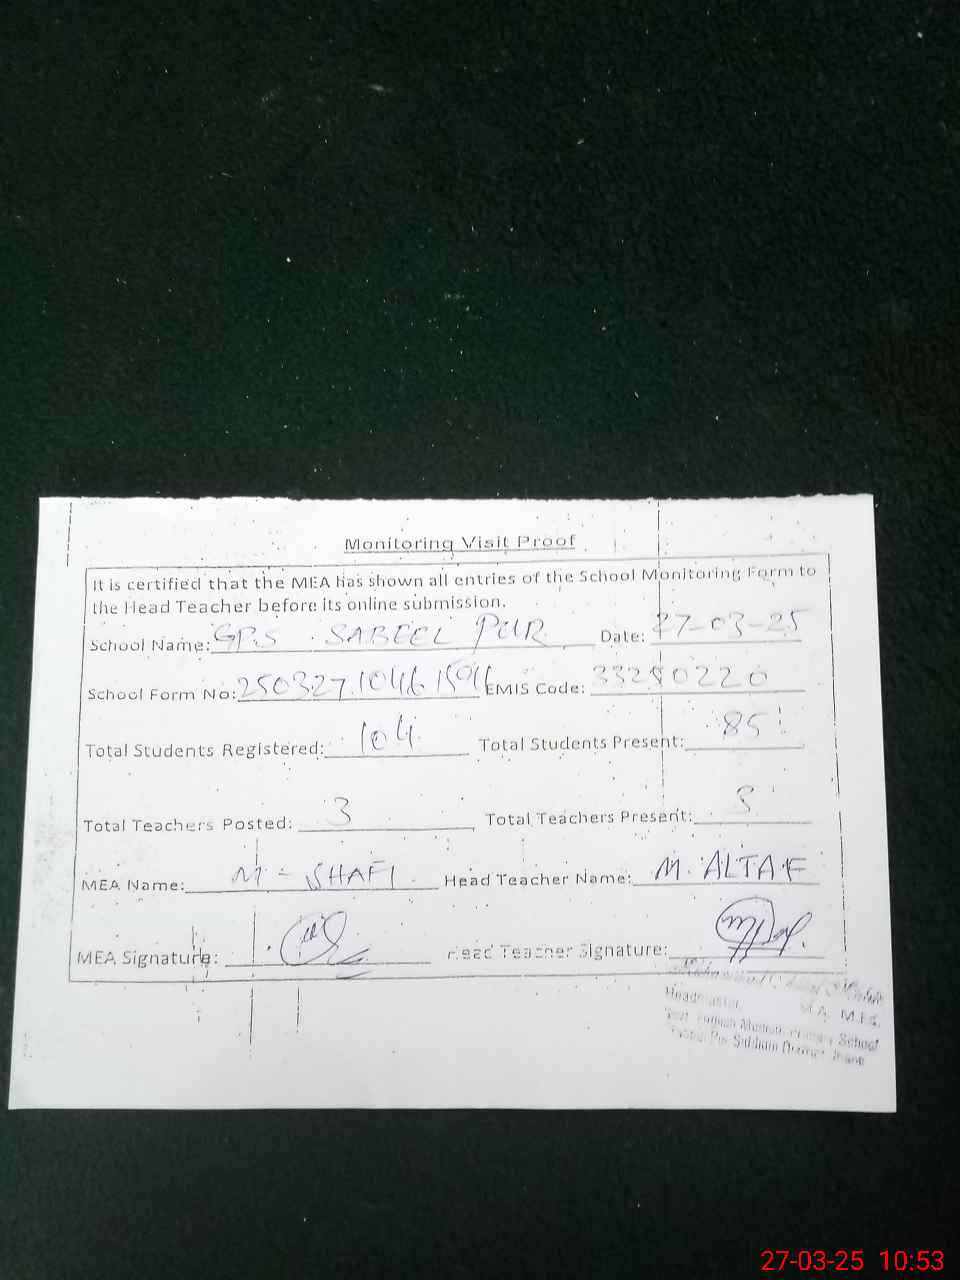 Monitoring Visit Proof
It is certified that the MEA has shown all entries of the School Monitoring Form to
the Head Teacher before its online submission.
School Name: GPS SABEEL PUR Date: 27-03-25
School Form No: EMIS Code: 33250220
Total Students Registered: 104 Total Students Present: 85
Total Teachers Posted: 3 Total Teachers Present: 3
MEA Name: M - SHAFI Head Teacher Name: M. ALTAF
MEA Signature: Head Teacher Signature:
Headmaster, M.A. M.Ed.
Govt. English Medium Primary School
27-03-25 10:53